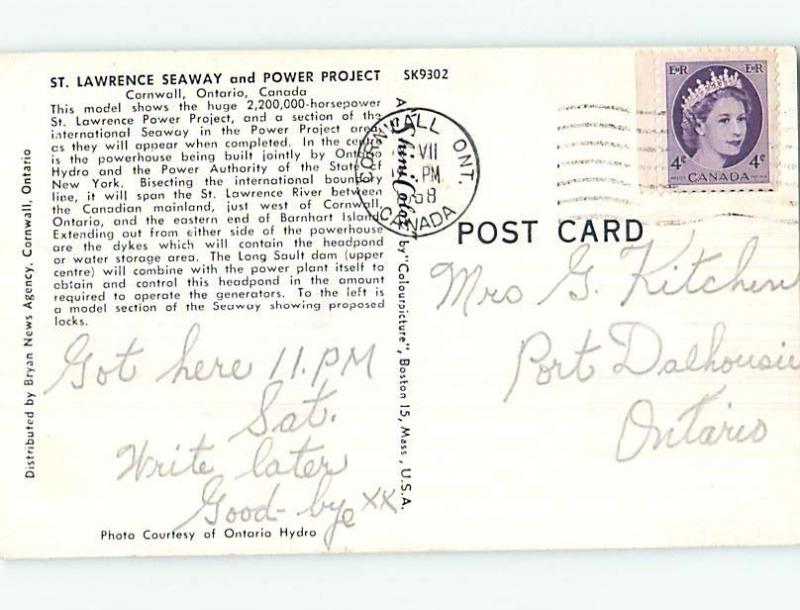 ST. LAWRENCE SEAWAY and POWER PROJECT
Cornwall, Ontario, Canada
This model shows the huge 2,200,000-horsepower
St. Lawrence Power Project, and a section of the
international Seaway in the Power Project area
as they will appear when completed. In the
is the powerhouse being built jointly by Ontario
Hydro and the Power Authority of the State of
New York. Bisecting the international boundary
line, it will span the St. Lawrence River between
the Canadian mainland, just west of Cornwall,
Ontario, and the eastern end of Barnhart Island.
Extending out from either side of the powerhouse
are the dykes which will contain the headpond
or water storage area. The Long Sault dam (upper
centre) will combine with the power plant itself to
obtain and control this headpond in the amount
required to operate the generators. To the left is
a model section of the Seaway showing proposed
locks.
Got here 11.PM
Sat.
Write later
Good-bye xx
Photo Courtesy of Ontario Hydro
Distributed by Bryan News Agency, Cornwall, Ontario
SK9302
A "ShiniColor" by "Colourpicture", Boston 15, Mass., U.S.A.
CORNWALL ONT.
VII
PM
58
CANADA
E R E R
4¢ 4¢
CANADA
POST CARD
Mrs G. Kitchen
Port Dalhousie
Ontario